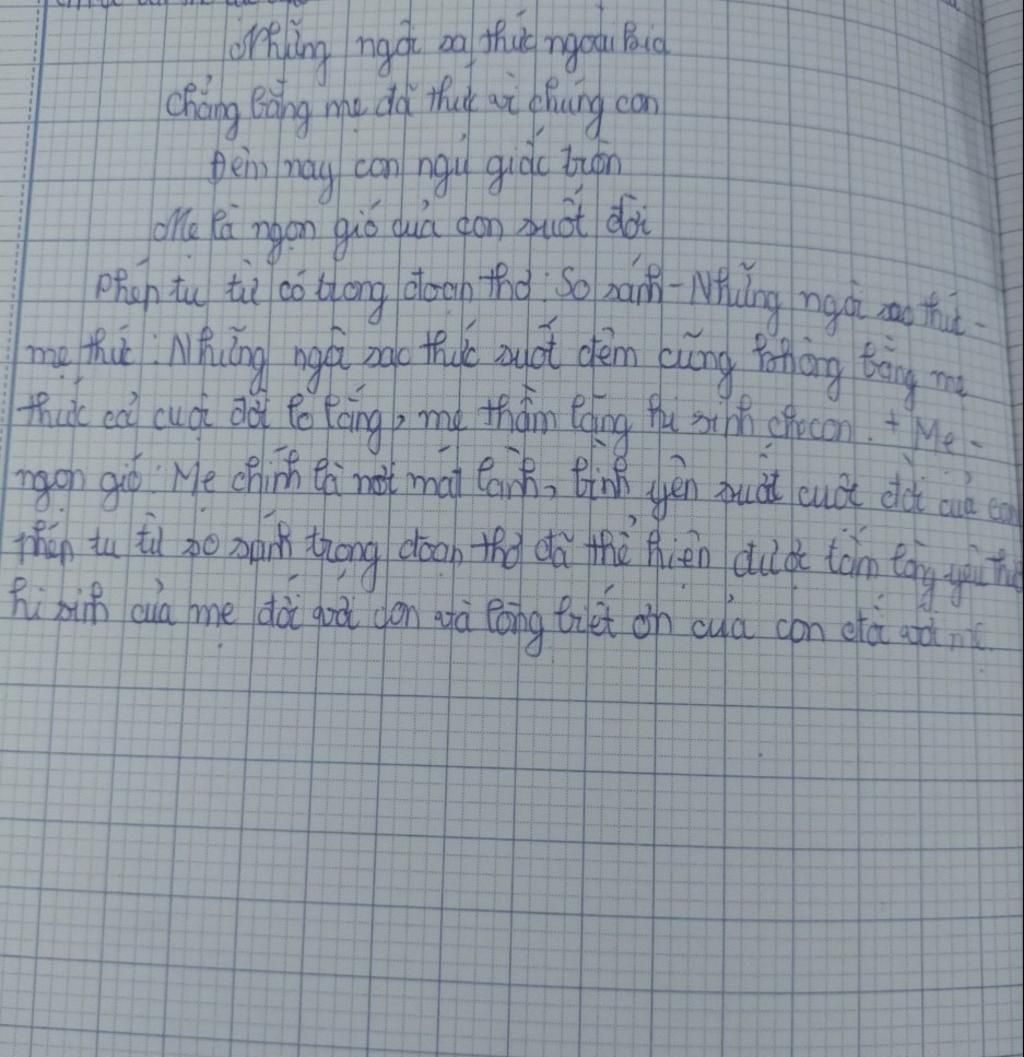 Những ngôi sao thức ngoài kia
chẳng bằng mẹ đã thức vì chúng con
Đêm nay con ngủ giấc tròn
Mẹ là ngọn gió của con suốt đời
phép tu từ có trong đoạn thơ: So sánh - Những ngôi sao thức -
mẹ thức: Những ngôi sao thức suốt đêm cũng không bằng mẹ
thức cả cuộc đời lo lắng, mẹ thầm lặng hi sinh cho con. + Mẹ -
ngọn gió: Mẹ chính là nơi mát lành, bình yên suốt cuộc đời của con
phép tu từ so sánh trong đoạn thơ đã thể hiện được tấm lòng yêu
hi sinh của mẹ đối với con và lòng biết ơn của con đối với mẹ.